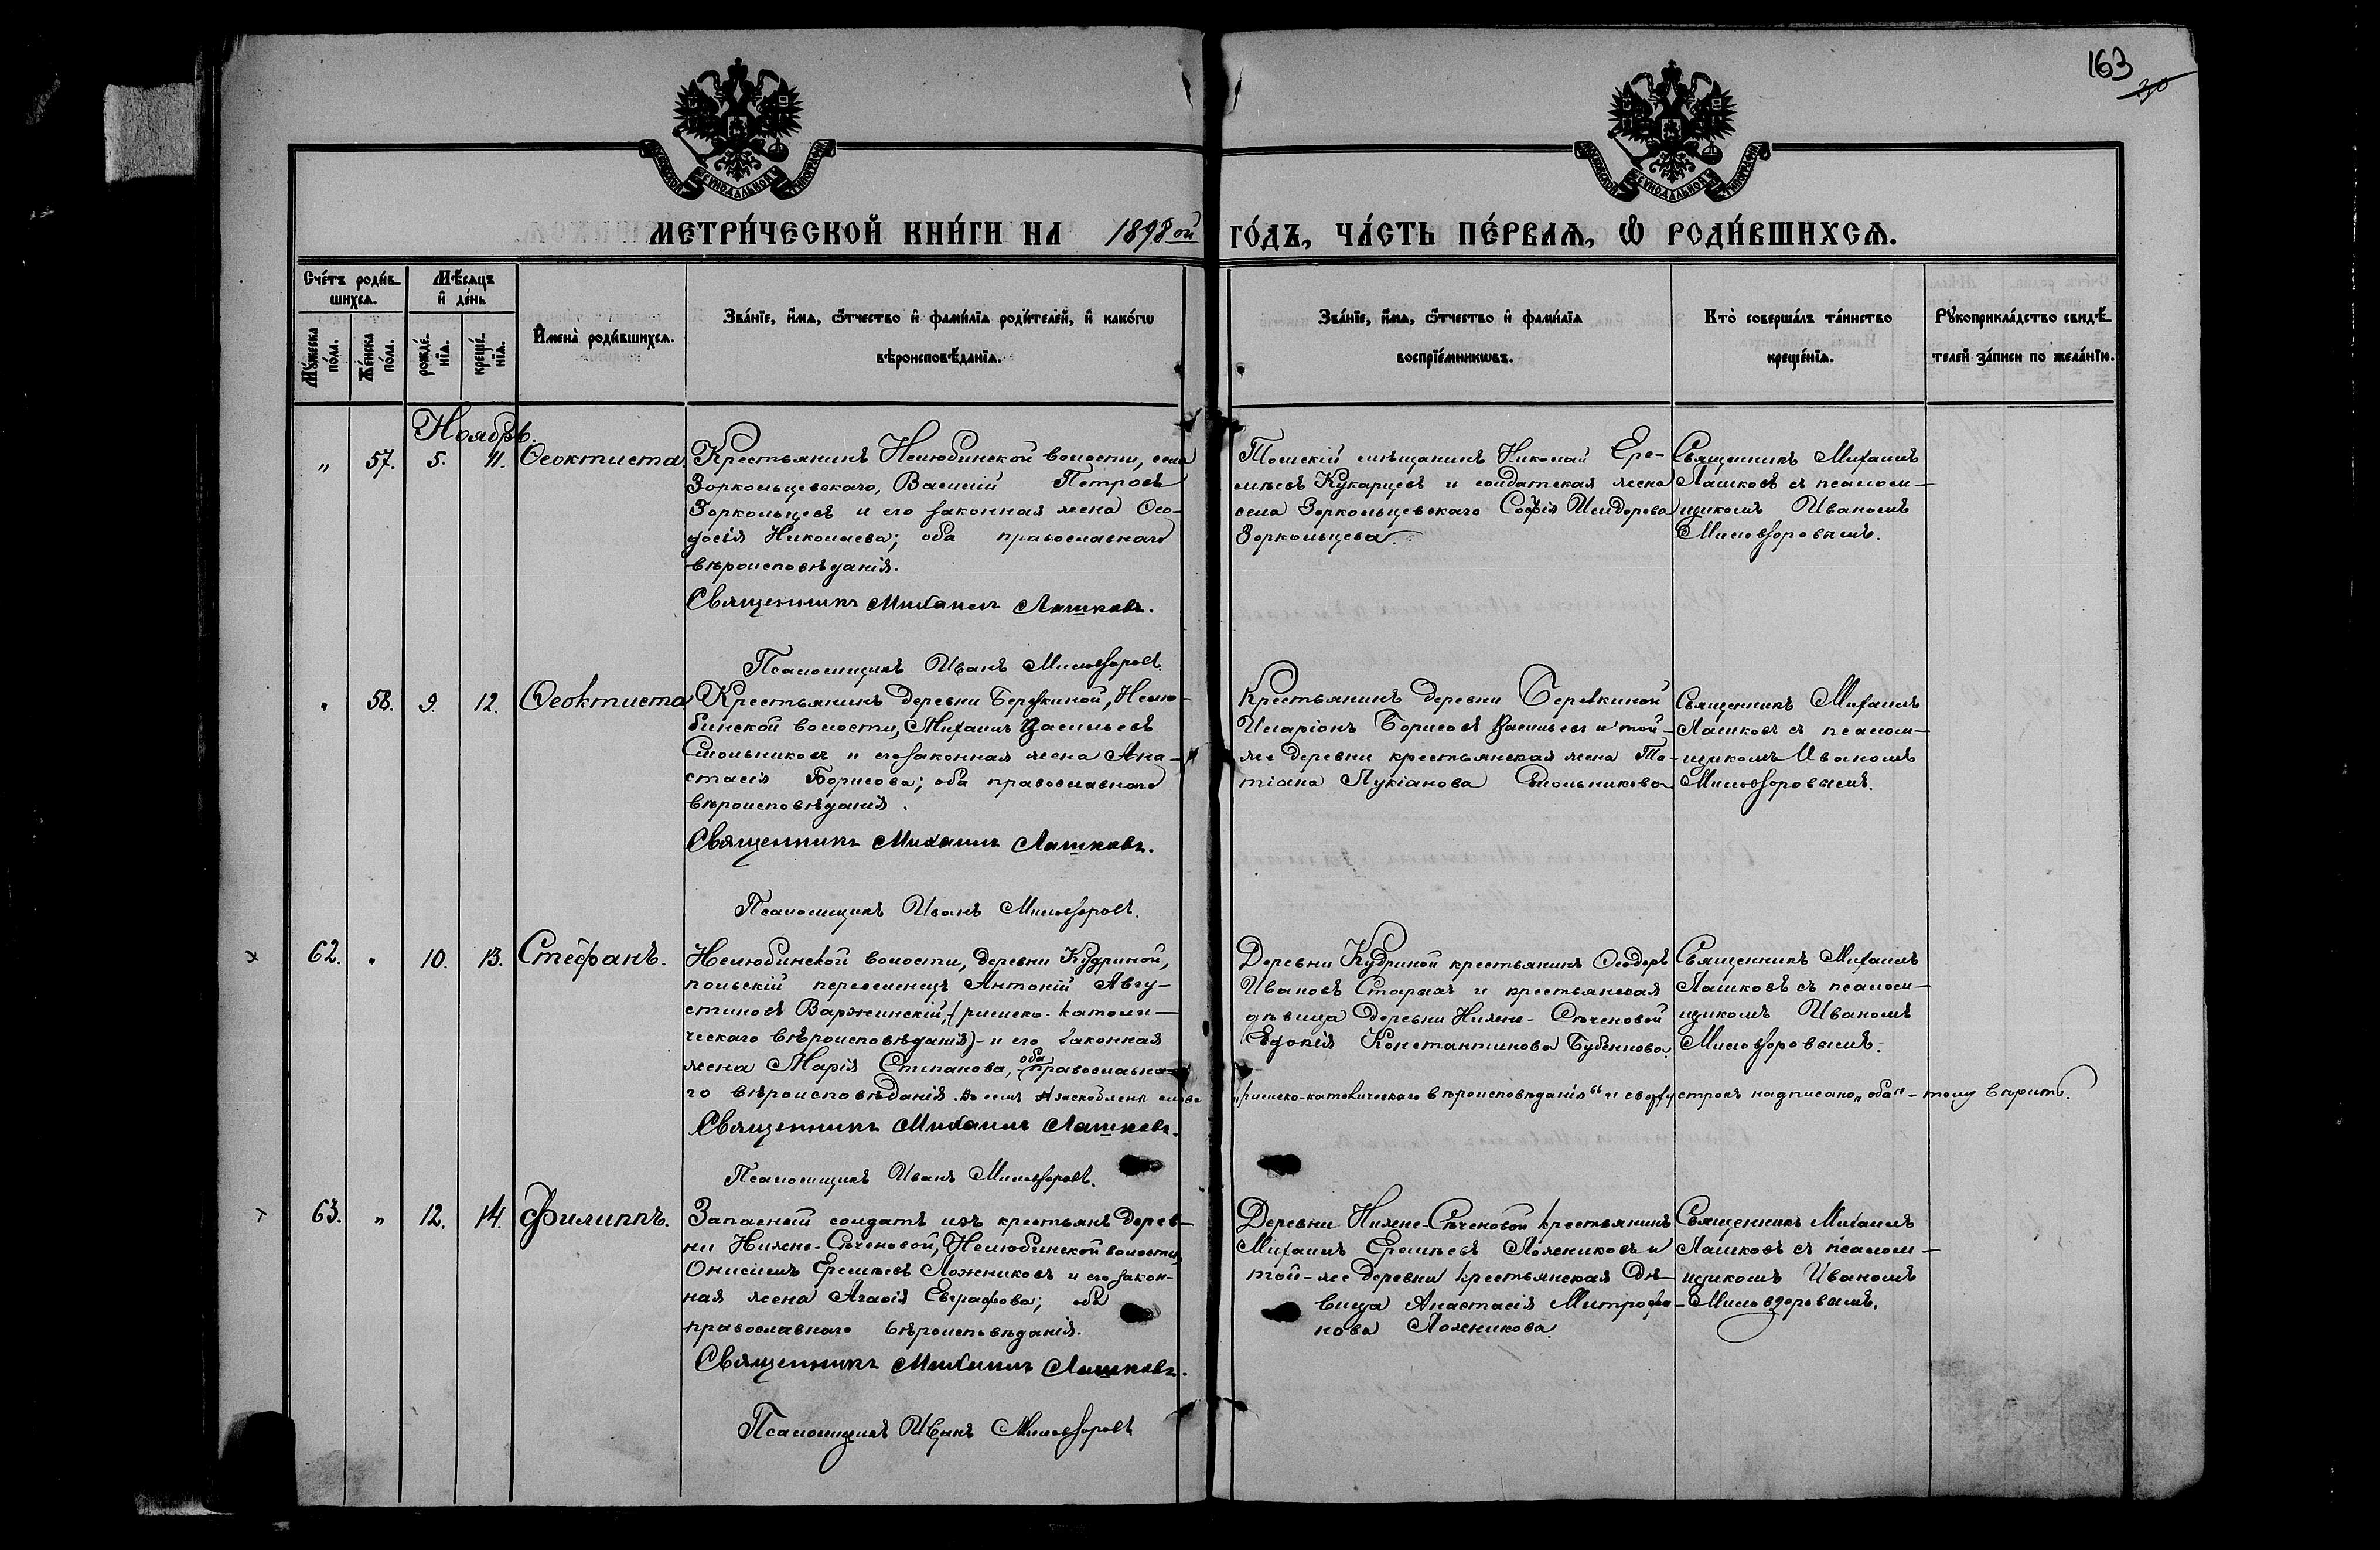 163
30
МОСКОВСКОЙ СѴНОДАЛЬНОЙ ТИПОГРАФІИ
МОСКОВСКОЙ СѴНОДАЛЬНОЙ ТИПОГРАФІИ
МЕТРИ́ЧЕСКОЙ КНИ́ГИ НА 1898ой ГО́ДЪ, ЧА́СТЬ ПЕ́РВАѦ, Ѡ РОДИ́ВШИХСѦ.
Сче́тъ роди́в-
шихсѧ.
Мѣ́сѧцъ
и҆ де́нь
Му́жеска по́ла.
Же́нска по́ла.
рожде́-
нїѧ.
креще́-
нїѧ.
И҆мена̀ роди́вшихсѧ.
Зва́нїе, и҆́мѧ, ѻ҆́тчество и҆ фами́лїѧ роди́телей, и҆ како́гѡ
вѣроисповѣ́данїѧ.
Зва́нїе, и҆́мѧ, ѻ҆́тчество и҆ фами́лїѧ
воспрїе́мникѡвъ.
Кто̀ соверша́лъ та́инство
креще́нїѧ.
Рꙋкоприкла́дство свидѣ́-
телей за́писи по жела́нїю.
Ноябрь.
„ 57. 5. 11. Ѳеоктиста.
Крестьянинъ Нелюбинской волости, села
Зоркольцевскаго, Василій Петровъ
Зоркольцевъ и его законная жена Ѳео-
досія Николаева; оба православнаго
вѣроисповѣданія.
Священникъ Михаилъ Лашковъ.
Псаломщикъ Иванъ Миловзоровъ.
Томскій мѣщанинъ Николай Ере-
мѣевъ Кукарцевъ и солдатская жена
села Зоркольцевскаго Софія Исидорова
Зоркольцева.
Священникъ Михаилъ
Лашковъ съ псалом-
щикомъ Иваномъ
Миловзоровымъ.
„ 58. 9. 12. Ѳеоктиста
Крестьянинъ деревни Березкиной, Нелю-
бинской волости, Михаилъ Васильевъ
Смольниковъ и его законная жена Ана-
стасія Борисова; оба православнаго
вѣроисповѣданія.
Священникъ Михаилъ Лашковъ.
Псаломщикъ Иванъ Миловзоровъ.
Крестьянинъ деревни Березкиной
Иларіонъ Борисовъ Васильевъ и той-
же деревни крестьянская жена Та-
тіана Лукіанова Смольникова
Священникъ Михаилъ
Лашковъ съ псалом-
щикомъ Иваномъ
Миловзоровымъ.
62. „ 10. 13. Стефанъ.
Нелюбинской волости, деревни Кудриной,
польскій переселенецъ Антоній Авгу-
стиновъ Варжинскій, (римско-католи-
ческаго вѣроисповѣданія)- и его законная
жена Марія Степанова, оба православна-
го вѣроисповѣданія.
Священникъ Михаилъ Лашковъ.
Псаломщикъ Иванъ Миловзоровъ.
Деревни Кудриной крестьянинъ Ѳеодоръ
Ивановъ и крестьянская
дѣвица деревни Нижне-Сѣченовой
Евдокія Константинова Бубеннова.
Священникъ Михаилъ
Лашковъ съ псалом-
щикомъ Иваномъ
Миловзоровымъ.
„римско-католическаго вѣроисповѣданія“ и сверху строкъ надписано „оба“ - тому вѣрить.
63. „ 12. 14. Филиппъ.
Запасный солдатъ изъ крестьянъ дерев-
ни Нижне-Сѣченовой, Нелюбинской волости,
Онисимъ Еремѣевъ Ложниковъ и его закон-
ная жена Агаѳія Евграфова; оба
православнаго вѣроисповѣданія.
Священникъ Михаилъ Лашковъ.
Псаломщикъ Иванъ Миловзоровъ
Деревни Нижне-Сѣченовой крестьянинъ
Михаилъ Еремѣевъ Ложниковъ и
той-же деревни крестьянская дѣ-
вица Анастасія Митрофа-
нова Ложникова.
Священникъ Михаилъ
Лашковъ съ псалом-
щикомъ Иваномъ
Миловзоровымъ.